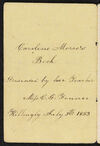 Caroline Morse's
Book
Presented by her Teacher
Miss C. A.
Killingly July 1853